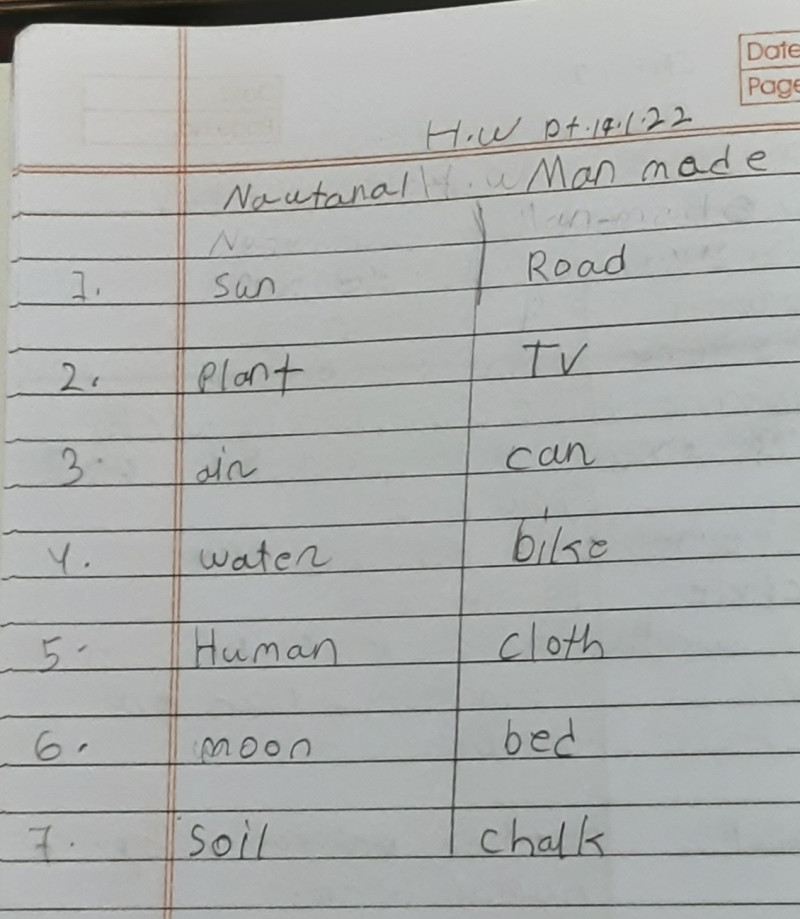 Date
Page
H.W Dt.14.1.22
Nautanal Man made
1. Sun Road
2. Plant TV
3. air car
4. water bike
5. Human cloth
6. moon bed
7. Soil chalk